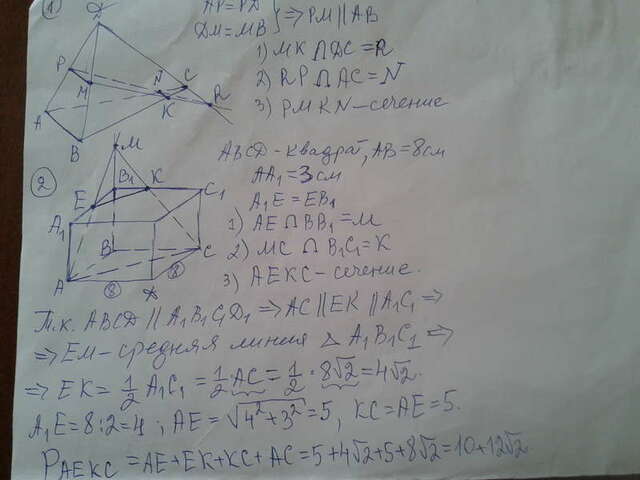 1
AP=PD
DM=MB } ⇒ PM || AB
1) MK ∩ DC = R
2) RP ∩ AC = N
3) PMKN – сечение
D
P
M
N
C
K
R
A
B
2
ABCD – квадрат, AB = 8см
AA₁ = 3см
A₁E = EB₁
1) AE ∩ BB₁ = M
2) MC ∩ B₁C₁ = K
3) AEKC – сечение.
M
B₁
K
C₁
E
A₁
B
C
A
8
D
8
Т.к. ABCD || A₁B₁C₁D₁ ⇒ AC || EK || A₁C₁ ⇒
⇒ EM – средняя линия △ A₁B₁C₁ ⇒
⇒ EK = 1/2 A₁C₁ = 1/2 · AC = 1/2 · 8√2 = 4√2.
A₁E = 8:2 = 4; AE = √(4² + 3²) = 5, KC = AE = 5.
P AEKC = AE + EK + KC + AC = 5 + 4√2 + 5 + 8√2 = 10 + 12√2.